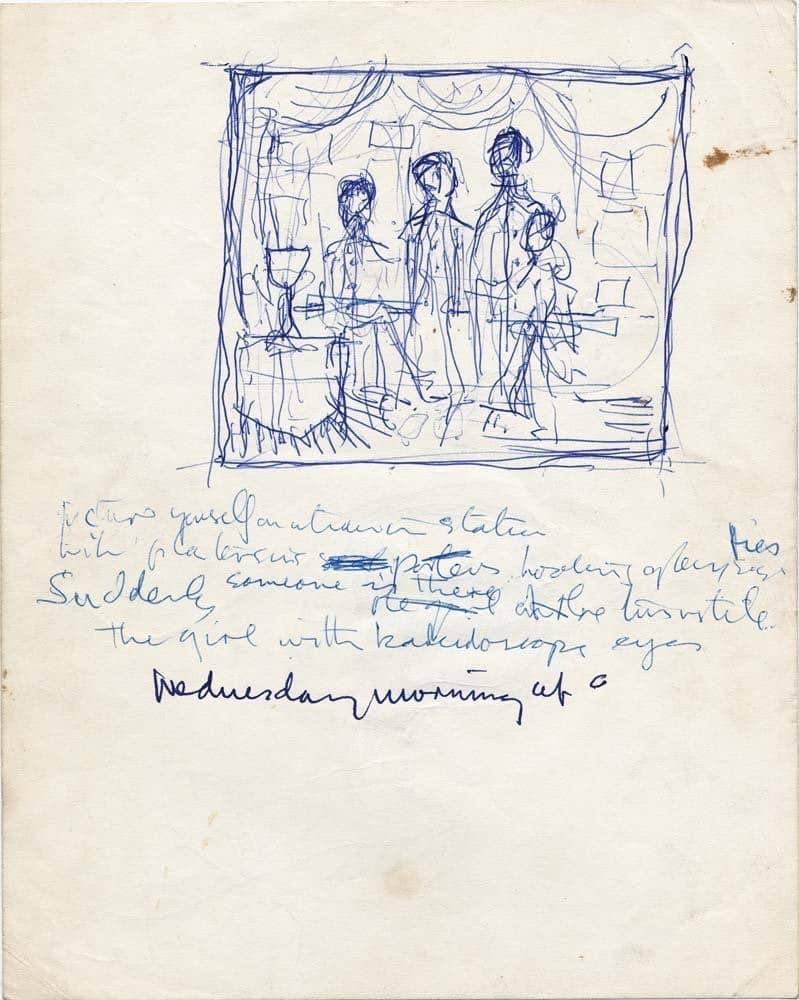 picture yourself on a train in a station
with plasticine porters looking glass ties
Suddenly someone is there at the turnstile
the girl with kaleidoscope eyes
Wednesday morning at